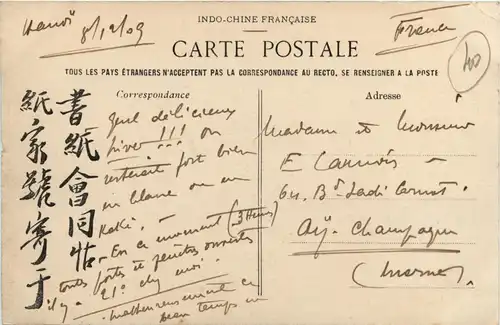 Hanoï 8/12/09
INDO-CHINE FRANÇAISE
France
CARTE POSTALE
40
TOUS LES PAYS ÉTRANGERS N'ACCEPTENT PAS LA CORRESPONDANCE AU RECTO, SE RENSEIGNER A LA POSTE
Correspondance
Quel délicieux
hiver !!! on
resterait fort bien
en blanc ou en
Kaki. –
– En ce moment (3 heures)
toutes portes et fenêtres ouvertes
il y a 21° chez moi. –
malheureusement ce
beau temps
書紙會同帖
紙家號寄于
Adresse
Madame et Monsieur
E
64, Bd Sadi Carnot.
Aÿ-Champagne
(Marne)